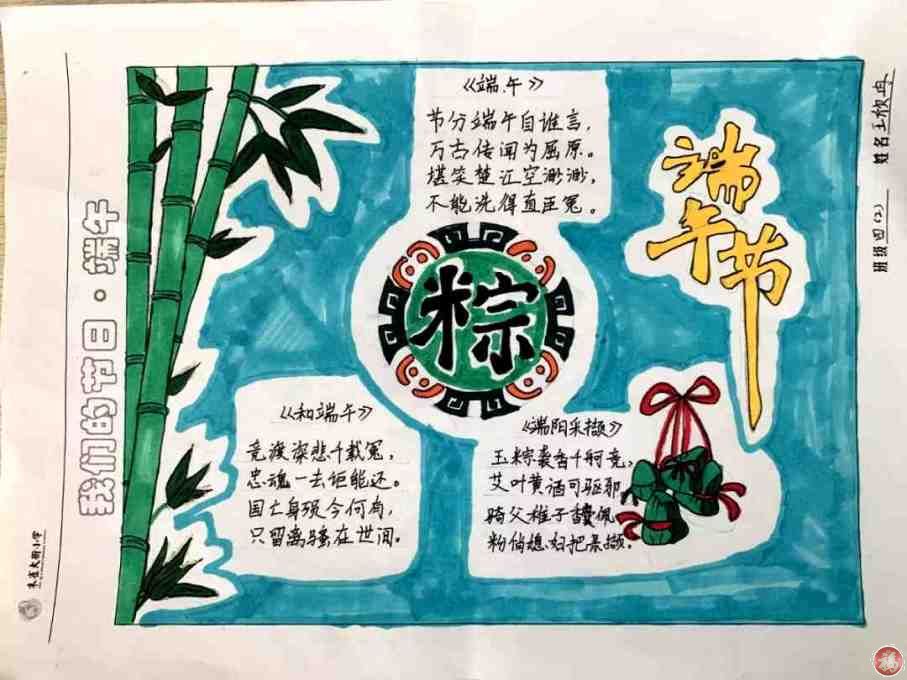 我们的节日·端午
《端午》
节分端午自谁言，
万古传闻为屈原。
堪笑楚江空渺渺，
不能洗得直臣冤。
端午节
粽
《和端午》
竞渡深悲千载冤，
忠魂一去讵能还。
国亡身殒今何有，
只留离骚在世间。
《端阳采撷》
玉粽袭香千舸竞，
艾叶黄酒可驱邪
骑父稚子香囊佩
粉俏媳妇把景撷。
班级四(2)
姓名王欣
大街小学